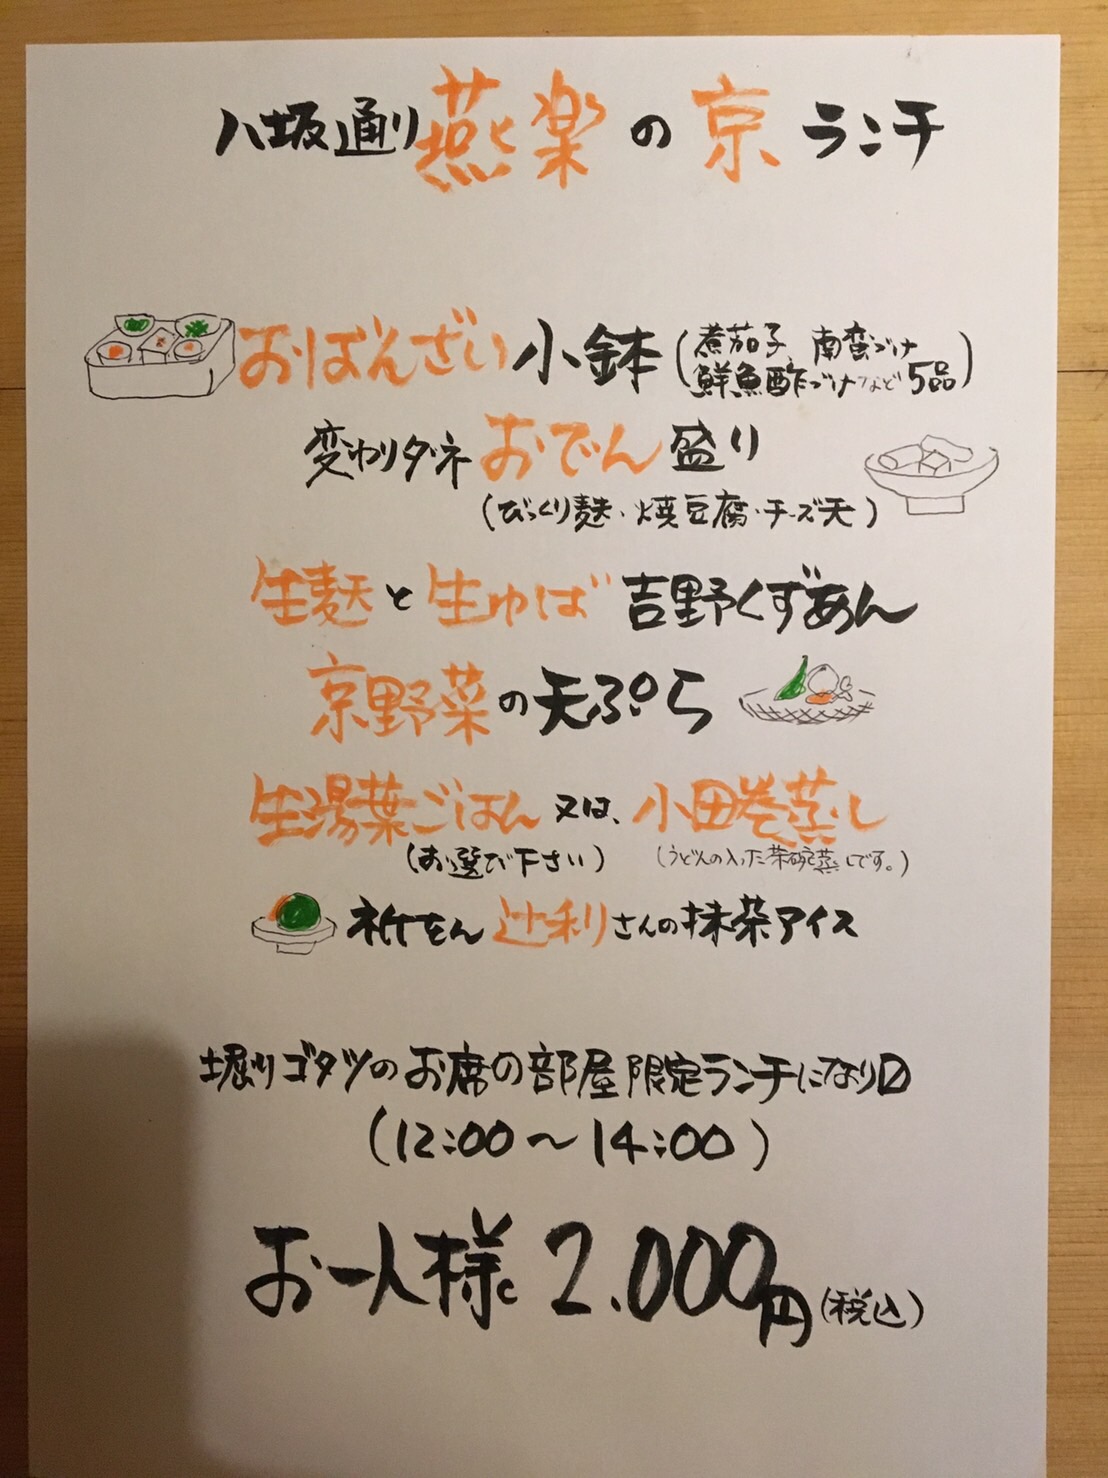 八坂通り燕楽の京ランチ
おばんざい小鉢(煮茄子 南蛮づけ
鮮魚酢づけなど5品)
変わりダネおでん盛り
(びっくり麩・焼豆腐・チーズ天)
生麩と生ゆば吉野くずあん
京野菜の天ぷら
生湯葉ごはん又は、小田巻蒸し
(お選び下さい) (うどんの入った茶碗蒸しです。)
祇をん辻利さんの抹茶アイス
堀りゴタツのお席の部屋限定ランチになり〼
(12:00〜14:00)
お一人様 2.000円(税込)